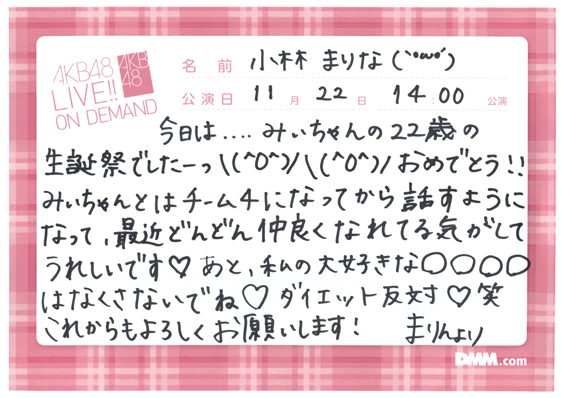 AKB48
LIVE!!
ON DEMAND
AKB
48
名 前 小林 まりな (`・ω・´)
公演日 11月 22日 14:00 公演
今日は....みぃちゃんの22歳の
生誕祭でしたーっ\(^O^)/\(^O^)/おめでとう!!
みぃちゃんとはチーム4になってから話すように
なって、最近どんどん仲良くなれてる気がして
うれしいです♡ あと、私の大好きな○○○○
はなくさないでね♡ ダイエット反対♡笑
これからもよろしくお願いします! まりんより
DMM.com